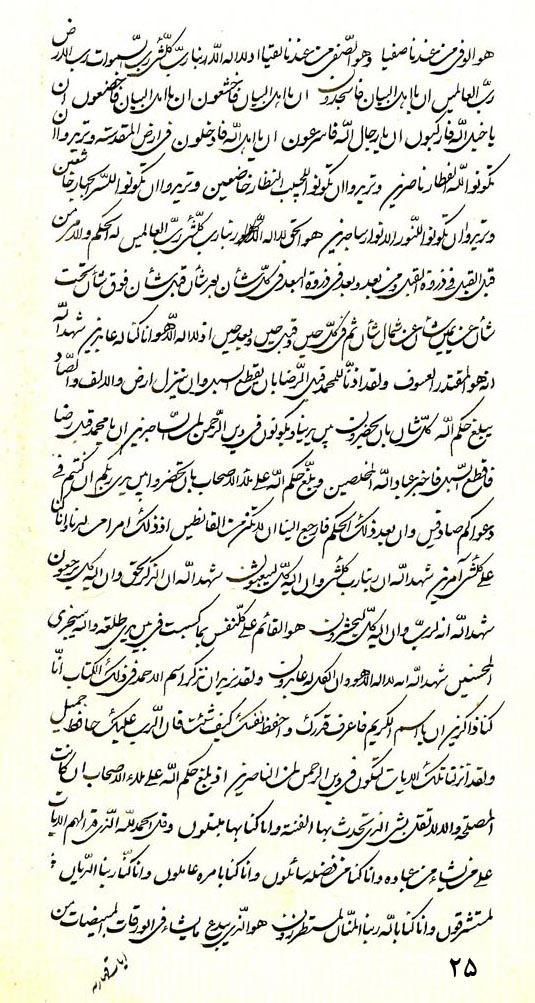 هو الوفی من عندنا صفیا و هو الصفی من عندنا نقیا اذ لا اله الا الله ربنا رب کلشئ رب السموات رب الارض
رب العالمین ان یا اهل البیان فاسجدون ان یا اهل البیان فاخشعون ان یا اهل البیان فاخضعون ان
یا خیل الله فارکبون ان یا رجال الله فاسرعون ان یا اهل الله فادخلون فی ارض المقدسة و تریدوا ان
تکونوا لله الفطار ناصرین و تریدوا ان تکونوا للحبیب النظار خاضعین و تریدوا ان تکونوا لله الجبار خاشعین
و تریدوا ان تکونوا للنور الانوار ساجدین هو الحق لا اله الا الله ربنا رب کلشئ رب العالمین له الحکم والامر من
قبل القبل فی ذروة القبل و من بعد و بعد فی ذروة البعد فی کل شأن بعد شأن قبل شأن فوق شأن تحت
شأن عن یمین شأن عن شمال شأن ثم فی کل حین و قبل حین و بعد حین اذ لا اله الا هو وانا کنا له عابدین شهد الله
انه هو المقتدر العسوف و لقد اذنا لمحمد قبل الرضا بان یقطع السبل و ان ینزل ارض والالف والصاد
یبلغ حکم الله کل شأن بان یحضرون بین یدینا و یکونون فی دین الرحمن لمن الساجدین ان یا محمد قبل رضا
فاقطع السبل فاخبر عباد الله المخلصین و بلغ حکم الله علی ملاء الاصحاب بان تحضروا بین یدی ربکم ان کنتم فی
دعواکم صادقین وان بعد ذلک الحکم فارجع الینا ان لا تکن من القانطین اذ ذلک امر من لدنا وانا کنا
علی کلشئ آمرین شهد الله ان ربنا رب کلشئ وان الیه کل لیبعثون شهد الله ان الذکر لحق وان الیه کل یرجعون
شهد الله انه لرب وان الیه کل لیحشرون هو القائم علی کل نفس بما کسبت فی بین یدی طلعته وانه سیجزی
المحسنین شهد الله انه لا اله الا هو وان الکل له عابدون و لقد نرید ان نذکر اسم الاحمد فی ذلک الکتاب انا
کنا ذاکرین ان یا اسم الکریم فاعرف قدرک و احفظ نفسک کیف شئت فان الرب علیک حافظ جمیل
و لقد انزلنا تلک الایات لتکون فی دین الرحمن لمن الناصرین اذ بلغ حکم الله علی ملاء الاصحاب ان کانت
المصلحة والا لا تقل بشئ الذی تحدث بها الفتنة وانا کنا بها مبتلون و قل الحمد لله الذی نزل الهم الایات
علی من یشاء من عباده وانا کنا من فضله سائلون وانا کنا بامره عاملون وانا کنا ربنا الدیان
لمستشرقون وانا کنا بالله ربنا المنان لمستطردون هو الذی یبدع ما یشاء فی الورقات البیضات من
۲۵